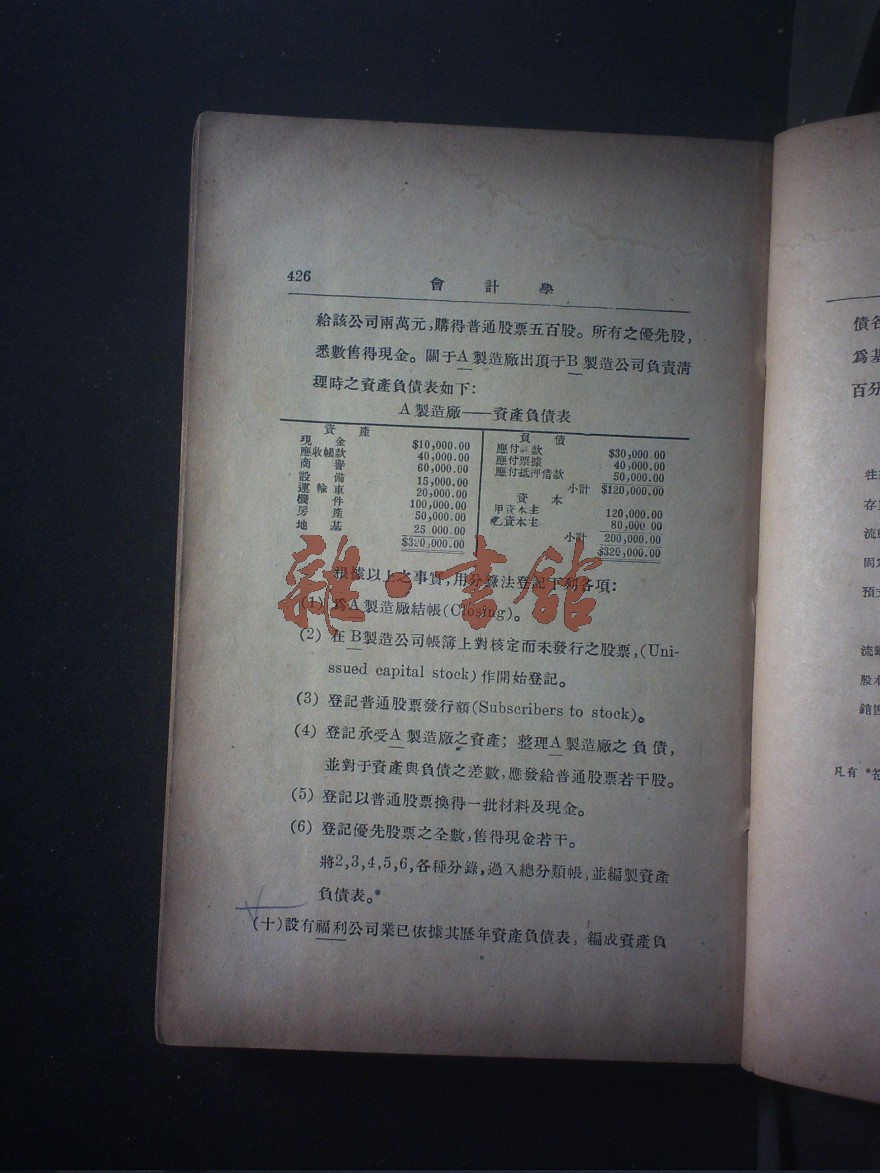 426
會計學
給該公司兩萬元,購得普通股票五百股。所有之優先股,
悉數售得現金。關于A製造廠出頂于B製造公司負責清
理時之資產負債表如下:
A製造廠——資產負債表
資產
現金 $10,000.00
應收帳款 40,000.00
商譽 60,000.00
設備 15,000.00
運輸車 20,000.00
機件 100,000.00
房產 50,000.00
地基 25 000.00
$320,000.00
負債
應付款 $30,000.00
應付票據 40,000.00
應付抵押借款 50,000.00
小計 $120,000.00
資本
甲資本主 120,000.00
乙資本主 80,000 00
小計 200,000.00
$320,000.00
根據以上之事實,用分錄法登記下列各項:
(1) 為A製造廠結帳(Closing)。
(2) 在B製造公司帳簿上對核定而未發行之股票,(Uni-
ssued capital stock)作開始登記。
(3) 登記普通股票發行額(Subscribers to stock)。
(4) 登記承受A製造廠之資產; 整理A製造廠之負債,
並對于資產與負債之差數,應發給普通股票若干股。
(5) 登記以普通股票換得一批材料及現金。
(6) 登記優先股票之全數,售得現金若干。
將2,3,4,5,6,各種分錄,過入總分類帳,並編製資產
負債表。*
(十)設有福利公司業已依據其歷年資產負債表, 編成資產負
雜·書館
債
為基
百分
往
存
流動
固定
預
流動
股本
銷
凡有 *